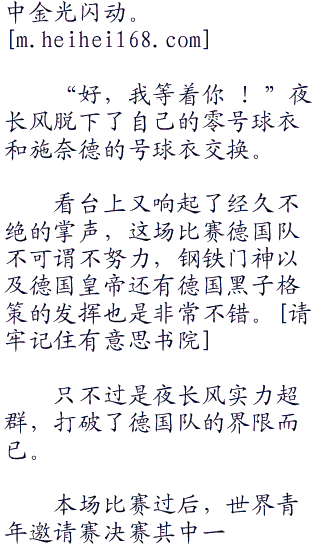 中金光闪动。
[m.heihei168.com]
“好，我等着你 ！”夜
长风脱下了自己的零号球衣
和施奈德的号球衣交换。
看台上又响起了经久不
绝的掌声，这场比赛德国队
不可谓不努力，钢铁门神以
及德国皇帝还有德国黑子格
策的发挥也是非常不错。[请
牢记住有意思书院]
只不过是夜长风实力超
群，打破了德国队的界限而
已。
本场比赛过后，世界青
年邀请赛决赛其中一